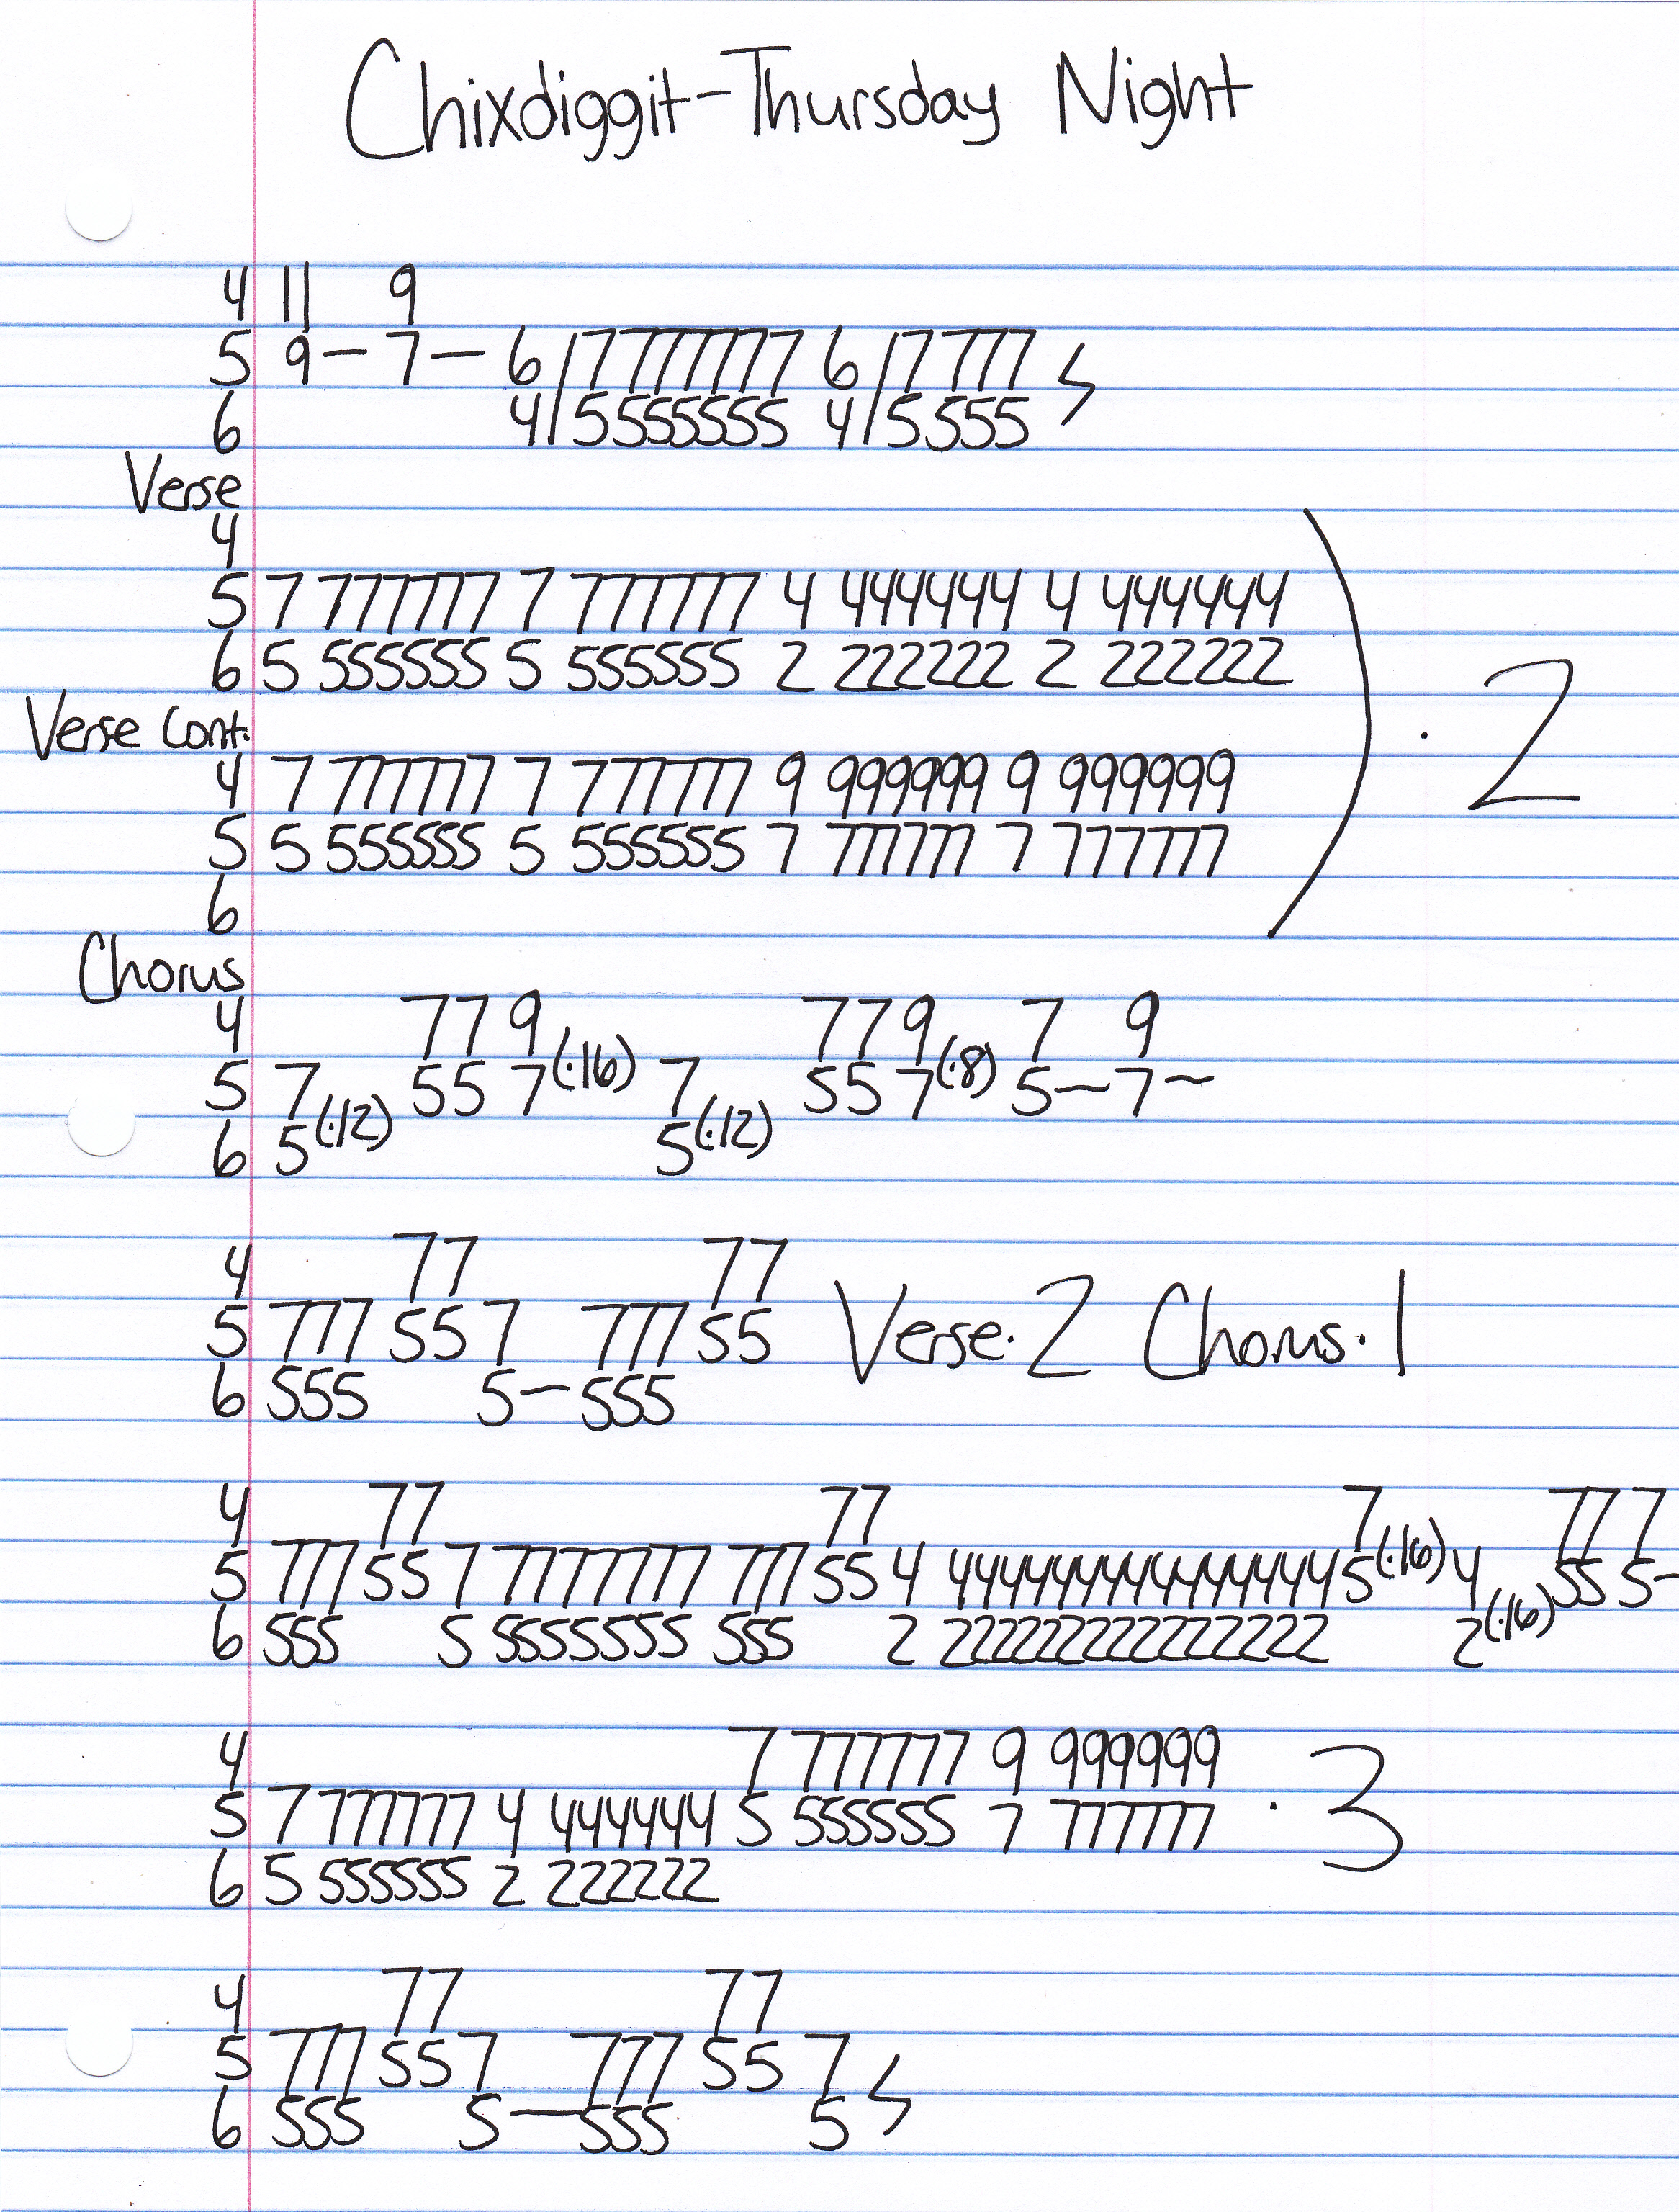 Chixdiggit-Thursday Night
4 11 9
5 9- 7- 6/7777777 6/7777
6 4/5555555 4/5555
Verse
4
5 7 777777 7 777777 4 444444 4 444444
6 5 555555 5 555555 2 222222 2 222222
· 2
Verse Cont.
4 7 777777 7 777777 9 999999 9 999999
5 5 555555 5 555555 7 777777 7 777777
6
Chorus
4 77 9 77 9 7 9
5 7 55 7(·16) 7 55 7(·8) 5- 7-
6 5(·12) 5(·12)
4 77 77
5 777 55 7 777 55 Verse·2 Chorus·1
6 555 5-555
4 77 77 7 77 7
5 777 55 7 7777777 777 55 4 444444444444444 5(·16) 4 55 5-
6 555 5 5555555 555 2 222222222222222 2(·16)
4 7 777777 9 999999
5 7 777777 4 444444 5 555555 7 777777 · 3
6 5 555555 2 222222
4 77 77
5 777 55 7 777 55 7
6 555 5-555 5